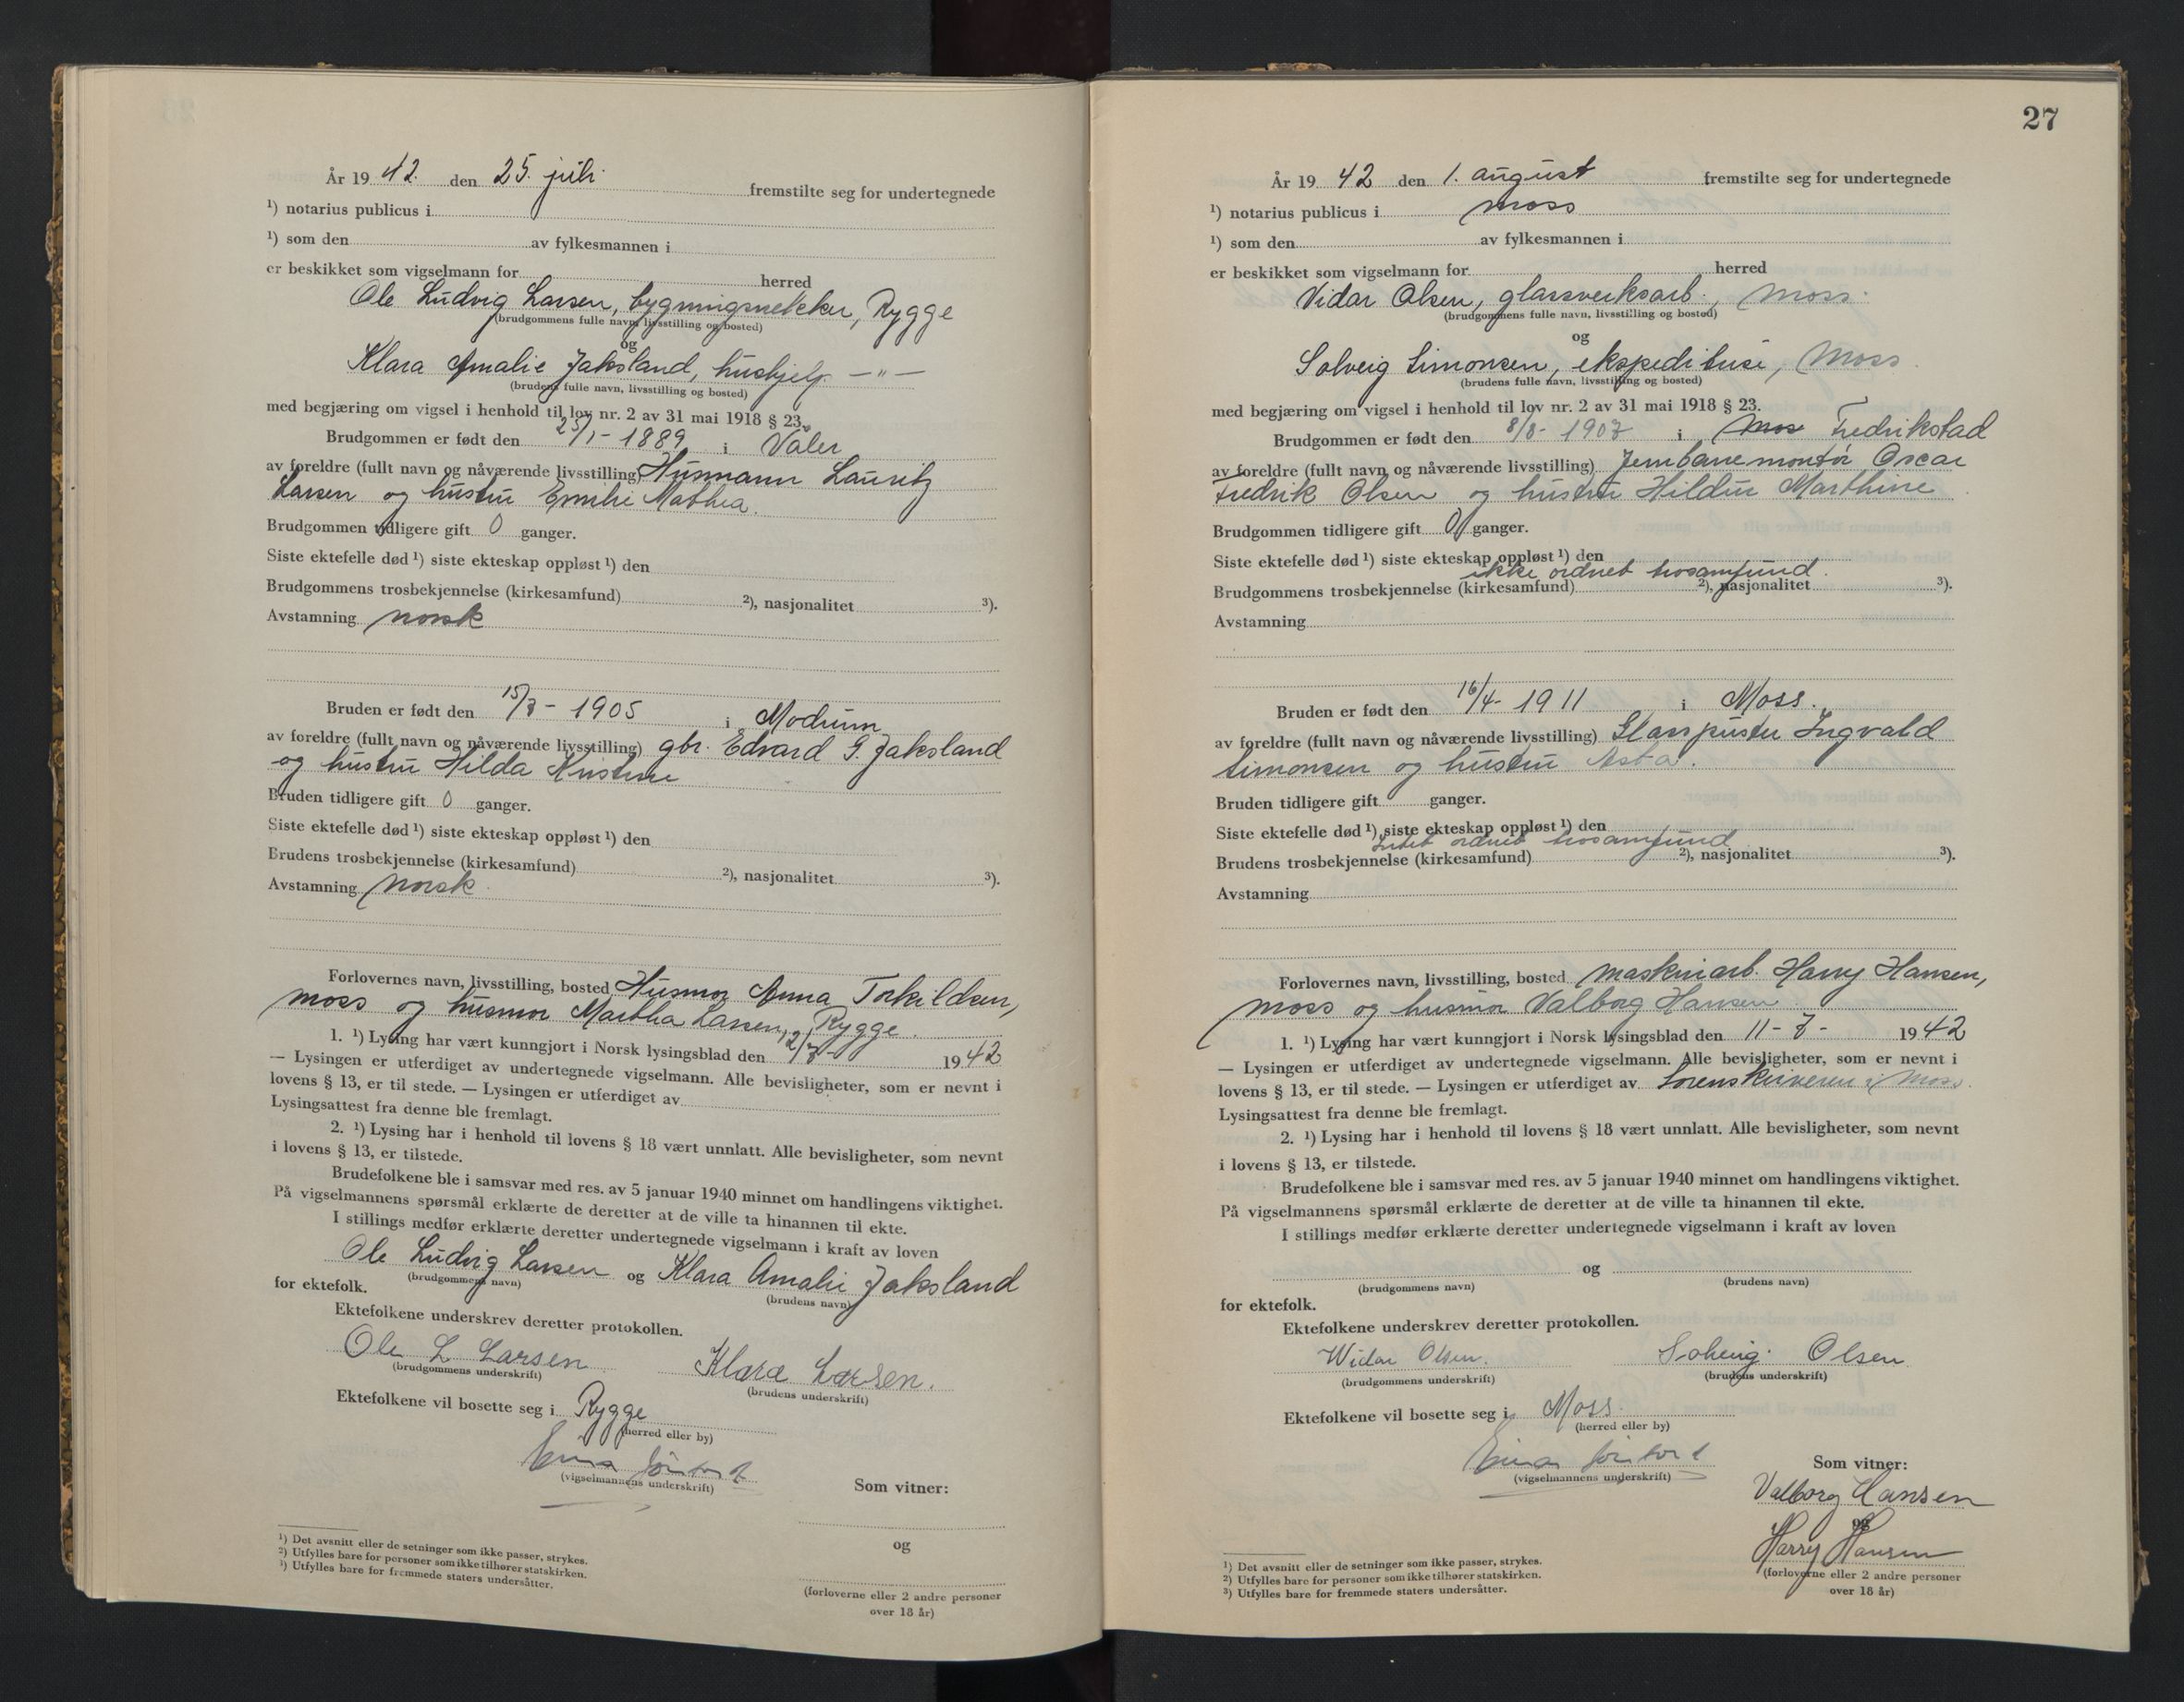 År 1942. den 25. juli. fremstilte seg for undertegnede
¹) notarius publicus i
¹) som den av fylkesmannen i
er beskikket som vigselmann for herred
Ole Ludvig Larsen, bygningssnekker, Rygge
(brudgommens fulle navn, livsstilling og bosted)
og
Klara Amalie Jaksland, hushjelp. —"—
(brudens fulle navn, livsstilling og bosted)
med begjæring om vigsel i henhold til lov nr. 2 av 31 mai 1918 § 23.
Brudgommen er født den 25/1 - 1889 i Våler
av foreldre (fullt navn og nåværende livsstilling) Husmann Lauritz
Larsen og hustru Emilie Mathea.
Brudgommen tidligere gift 0 ganger.
Siste ektefelle død ¹) siste ekteskap oppløst ¹) den
Brudgommens trosbekjennelse (kirkesamfund) ²), nasjonalitet ³).
Avstamning norsk
Bruden er født den 15/3 - 1905 i Modum
av foreldre (fullt navn og nåværende livsstilling) gbr. Edvard G. Jaksland
og hustru Hilda Kristine
Bruden tidligere gift 0 ganger.
Siste ektefelle død ¹) siste ekteskap oppløst ¹) den
Brudens trosbekjennelse (kirkesamfund) ²), nasjonalitet ³).
Avstamning norsk.
Forlovernes navn, livsstilling, bosted Husmor Anna Torkildsen,
Moss og husmor Martha Larsen, Rygge.
1. ¹) Lysing har vært kunngjort i Norsk lysingsblad den 12/7 - 1942
— Lysingen er utferdiget av undertegnede vigselmann. Alle bevisligheter, som er nevnt i
lovens § 13, er til stede. — Lysingen er utferdiget av
Lysingsattest fra denne ble fremlagt.
2. ¹) Lysing har i henhold til lovens § 18 vært unnlatt. Alle bevisligheter, som nevnt
i lovens § 13, er tilstede.
Brudefolkene ble i samsvar med res. av 5 januar 1940 minnet om handlingens viktighet.
På vigselmannens spørsmål erklærte de deretter at de ville ta hinannen til ekte.
I stillings medfør erklærte deretter undertegnede vigselmann i kraft av loven
Ole Ludvig Larsen og Klara Amalie Jaksland
(brudgommens navn) (brudens navn)
for ektefolk.
Ektefolkene underskrev deretter protokollen.
Ole L Larsen Klara Larsen.
(brudgommens underskrift) (brudens underskrift)
Ektefolkene vil bosette seg i Rygge
(herred eller by)
(vigselmannens underskrift)
Som vitner:
og
(forloverne eller 2 andre personer
over 18 år)
¹) Det avsnitt eller de setninger som ikke passer, strykes.
²) Utfylles bare for personer som ikke tilhører statskirken.
³) Utfylles bare for fremmede staters undersåtter.
27
År 1942 den 1. august fremstilte seg for undertegnede
¹) notarius publicus i Moss
¹) som den av fylkesmannen i
er beskikket som vigselmann for herred
Vidar Olsen, glassverksarb., Moss.
(brudgommens fulle navn, livsstilling og bosted)
og
Solveig Simonsen, ekspeditrise, Moss.
(brudens fulle navn, livsstilling og bosted)
med begjæring om vigsel i henhold til lov nr. 2 av 31 mai 1918 § 23.
Brudgommen er født den 8/8 - 1907 i Moss Fredrikstad
av foreldre (fullt navn og nåværende livsstilling) Jernbanemontør Oscar
Fredrik Olsen og hustru Hildur Marthine
Brudgommen tidligere gift 0 ganger.
Siste ektefelle død ¹) siste ekteskap oppløst ¹) den
ikke ordnet trosamfund.
Brudgommens trosbekjennelse (kirkesamfund) ²), nasjonalitet ³).
Avstamning
Bruden er født den 16/4 - 1911 i Moss.
av foreldre (fullt navn og nåværende livsstilling) Glasspuster Ingvald
Simonsen og hustru Asta.
Bruden tidligere gift ganger.
Siste ektefelle død ¹) siste ekteskap oppløst ¹) den
Intet ordnet trosamfund
Brudens trosbekjennelse (kirkesamfund) ²), nasjonalitet ³).
Avstamning
Forlovernes navn, livsstilling, bosted Maskinarb. Harry Hansen,
Moss og husmor Valborg Hansen
1. ¹) Lysing har vært kunngjort i Norsk lysingsblad den 11 - 7 - 1942
— Lysingen er utferdiget av undertegnede vigselmann. Alle bevisligheter, som er nevnt i
lovens § 13, er til stede. — Lysingen er utferdiget av Sorenskriveren i Moss.
Lysingsattest fra denne ble fremlagt.
2. ¹) Lysing har i henhold til lovens § 18 vært unnlatt. Alle bevisligheter, som nevnt
i lovens § 13, er tilstede.
Brudefolkene ble i samsvar med res. av 5 januar 1940 minnet om handlingens viktighet.
På vigselmannens spørsmål erklærte de deretter at de ville ta hinannen til ekte.
I stillings medfør erklærte deretter undertegnede vigselmann i kraft av loven
og
(brudgommens navn) (brudens navn)
for ektefolk.
Ektefolkene underskrev deretter protokollen.
Widar Olsen. Solveig Olsen
(brudgommens underskrift) (brudens underskrift)
Ektefolkene vil bosette seg i Moss.
(herred eller by)
(vigselmannens underskrift)
Som vitner:
Valborg Hansen
og
Harry Hansen
(forloverne eller 2 andre personer
over 18 år)
¹) Det avsnitt eller de setninger som ikke passer, strykes.
²) Utfylles bare for personer som ikke tilhører statskirken.
³) Utfylles bare for fremmede staters undersåtter.